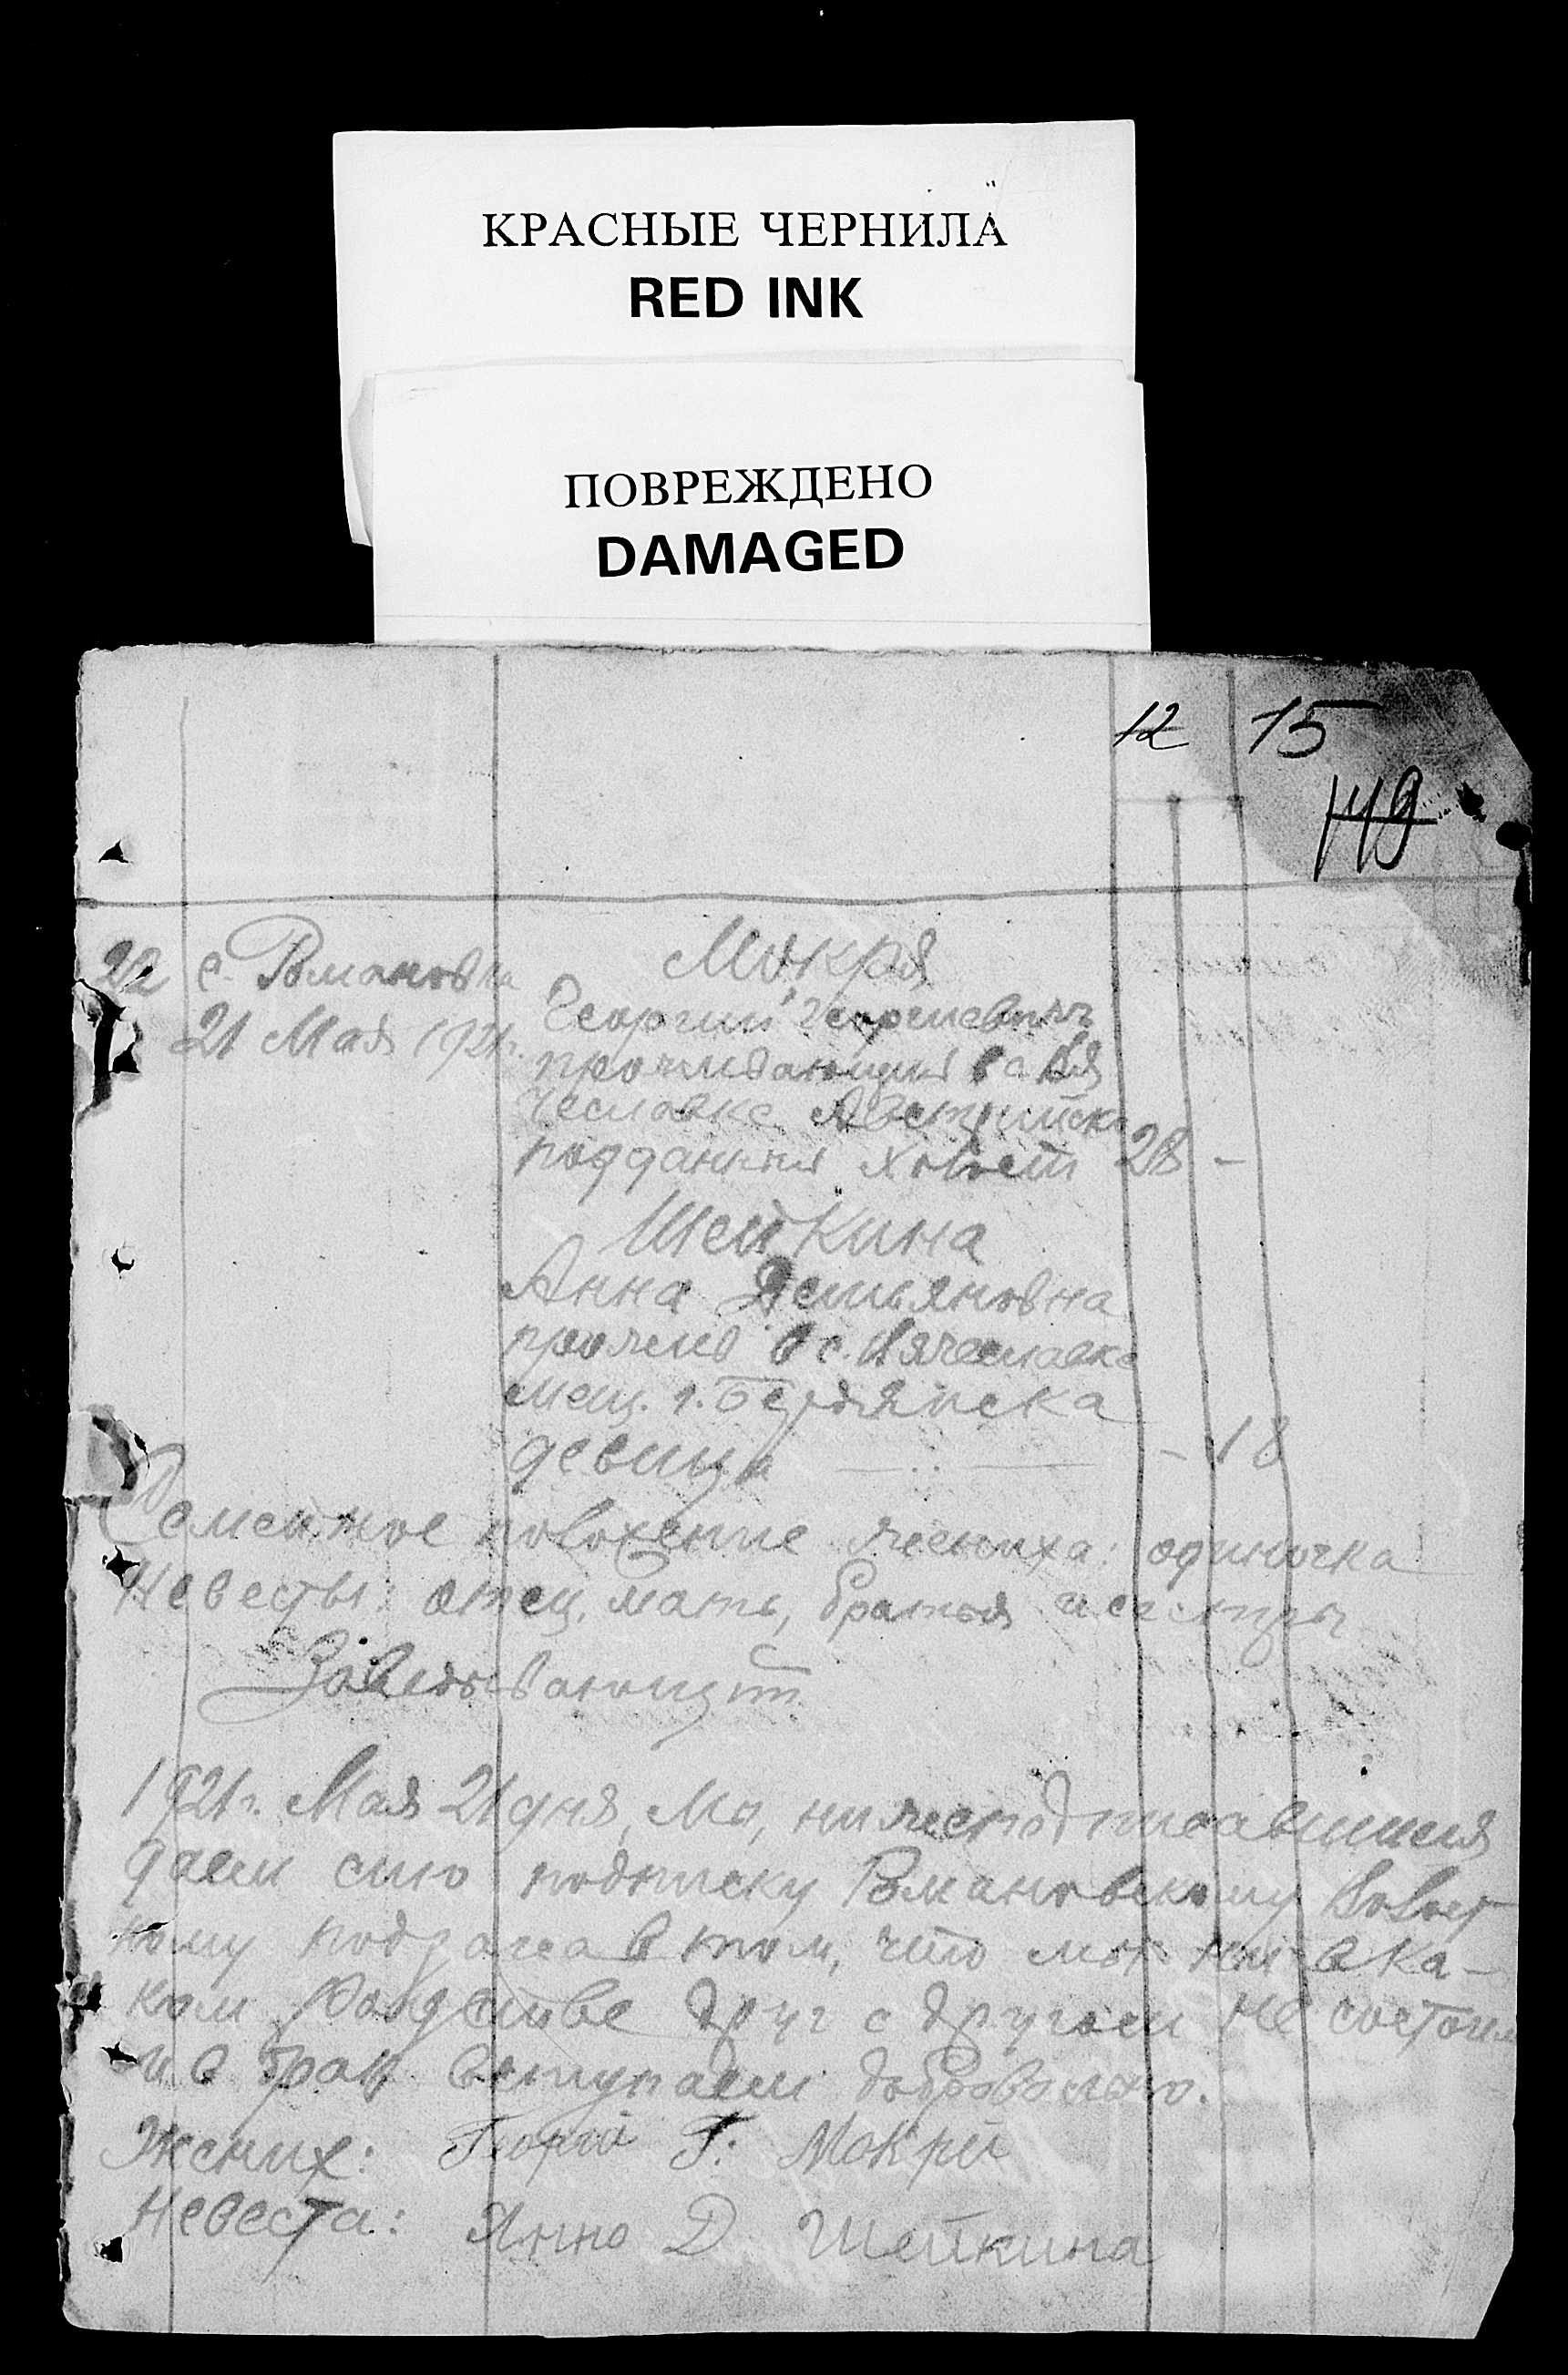 КРАСНЫЕ ЧЕРНИЛА
RED INK
ПОВРЕЖДЕНО
DAMAGED
12 15
149
22 с. Романовка
21 Мая 1921г.
Мокря
Георгий Георгиевичъ
проживающий в с Вя
чеславке Австрийск
подданный холост 28 -
Шейкина
Анна Демьяновна
прожив в с. Вячеславке
мещ. г. Бердянска
девица - 18
Семейное положение жениха: одиночка
Невесты: отец, мать, братья и сестры
Заведывающий
1921г. Мая 21 дня, Мы, нижеподписавшиеся
даем сию подписку Романовскому Волост
ному подзагса в том, что мы ни в ка-
ком родстве друг с другом не состоим
и в брак вступаем добровольно.
Жених: Георгій Г. Мокрій
Невеста: Анна Д Шейкина